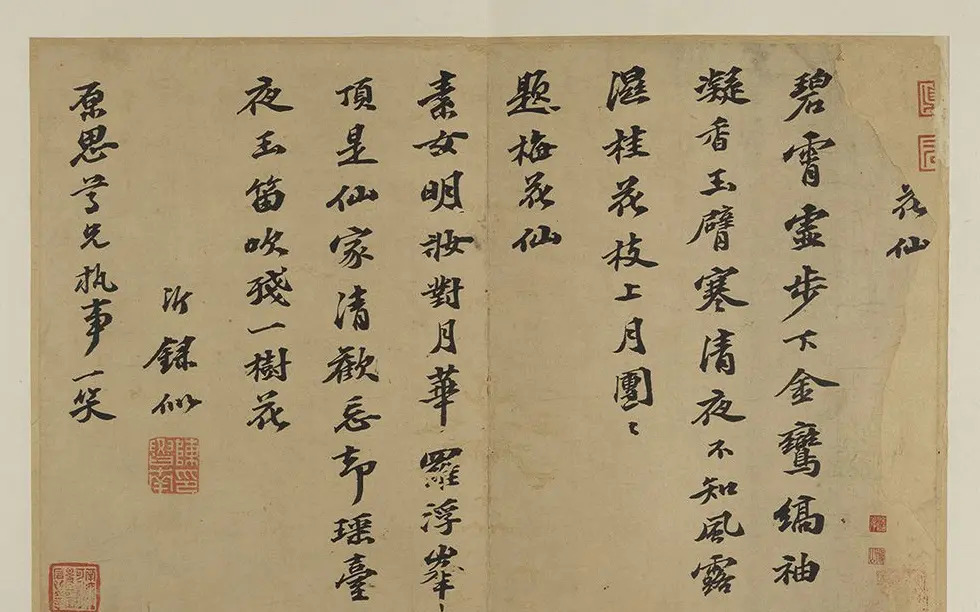 花仙
碧霄虛步下金鸞縞袖
凝香玉臂寒清夜不知風露
濕桂花枝上月團〻
題梅花仙
素女明妝對月華羅浮峯
頂是仙家清歡忘却瑤臺
夜玉笛吹殘一樹花
沂錄似
原思尊兄執事一笑